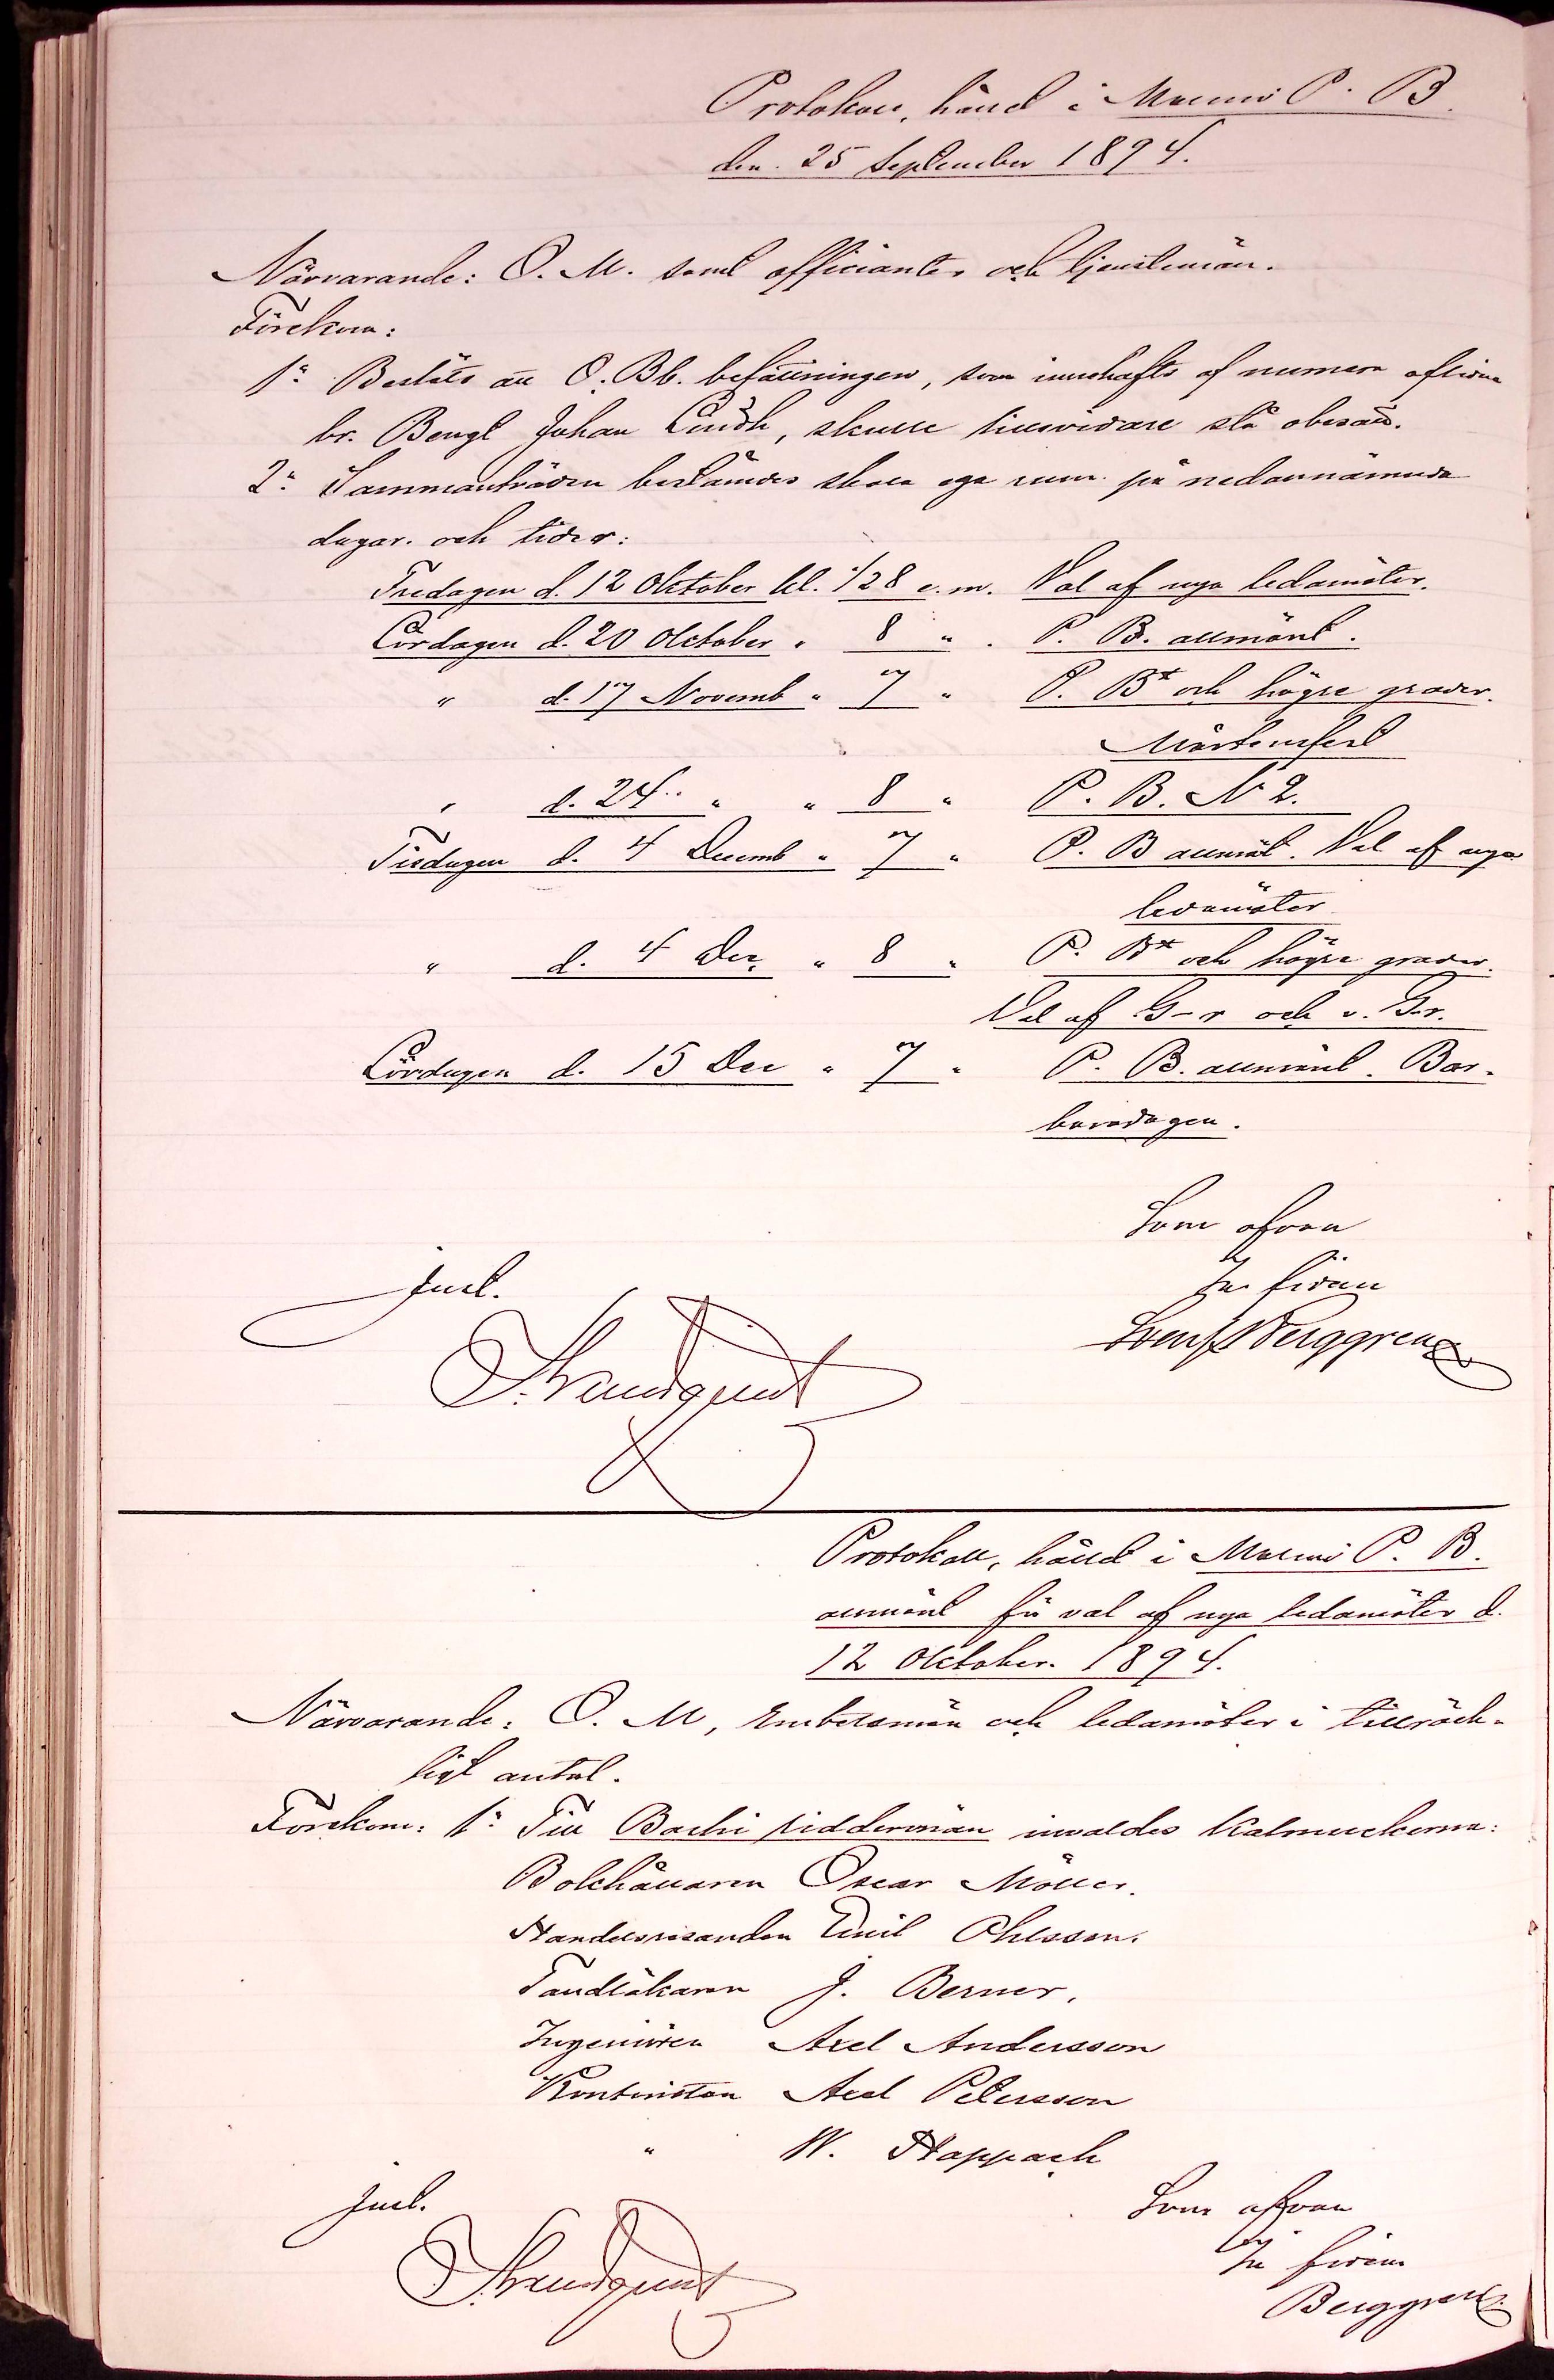 Protokoll, hållet i Malmö P. B.
den 25 September 1894.
Närvarande: O. M. samt officianter och tjenstemän.
Förekom:
1° Beslöts att O. Bb. befattningen, som innehafts af numera aflidna
br. Bengt Johan Lindh, skulle tillsvidare stå obesatt.
2° Sammanträden bestämdes skola ega rum på nedannämnda
dagar och tider:
Fredagen d. 12 Oktober kl. 1/2 8 e. m. Val af nya ledamöter.
Lördagen d. 20 Oktober " 8 " P. B. allmänt.
" d. 17 Novemb " 7 " P. B* och högre grader.
Mårtensfest
" d. 24 " " 8 " P. B. N 2.
Tisdagen d. 4 Decemb " 7 " P. B allmänt. Val af nya
ledamöter
" d. 4 Dec. " 8 " P. B* och högre grader.
Val af G-r och v. G-r.
Lördagen d. 15 Dec " 7 " P. B. allmänt. Bar-
baradagen.
Som ofvan
In fidem
Just.
Berggren
Protokoll, hållet i Malmö P. B.
allmänt för val af nya ledamöter d.
12 Oktober 1894.
Närvarande: O. M, Embetsmän och ledamöter i tillräck-
ligt antal.
Förekom: 1° Till Bachi riddersmän invaldes Kalmuckerna:
Bokhållaren Oscar Möller.
Handelsresanden Emil Ohlsson.
Tandläkaren J. Berner.
Ingeniören Axel Andersson
Kontoristen Axel Petersson
" W. Happach
Just.
Som ofvan
In fidem
Berggren.